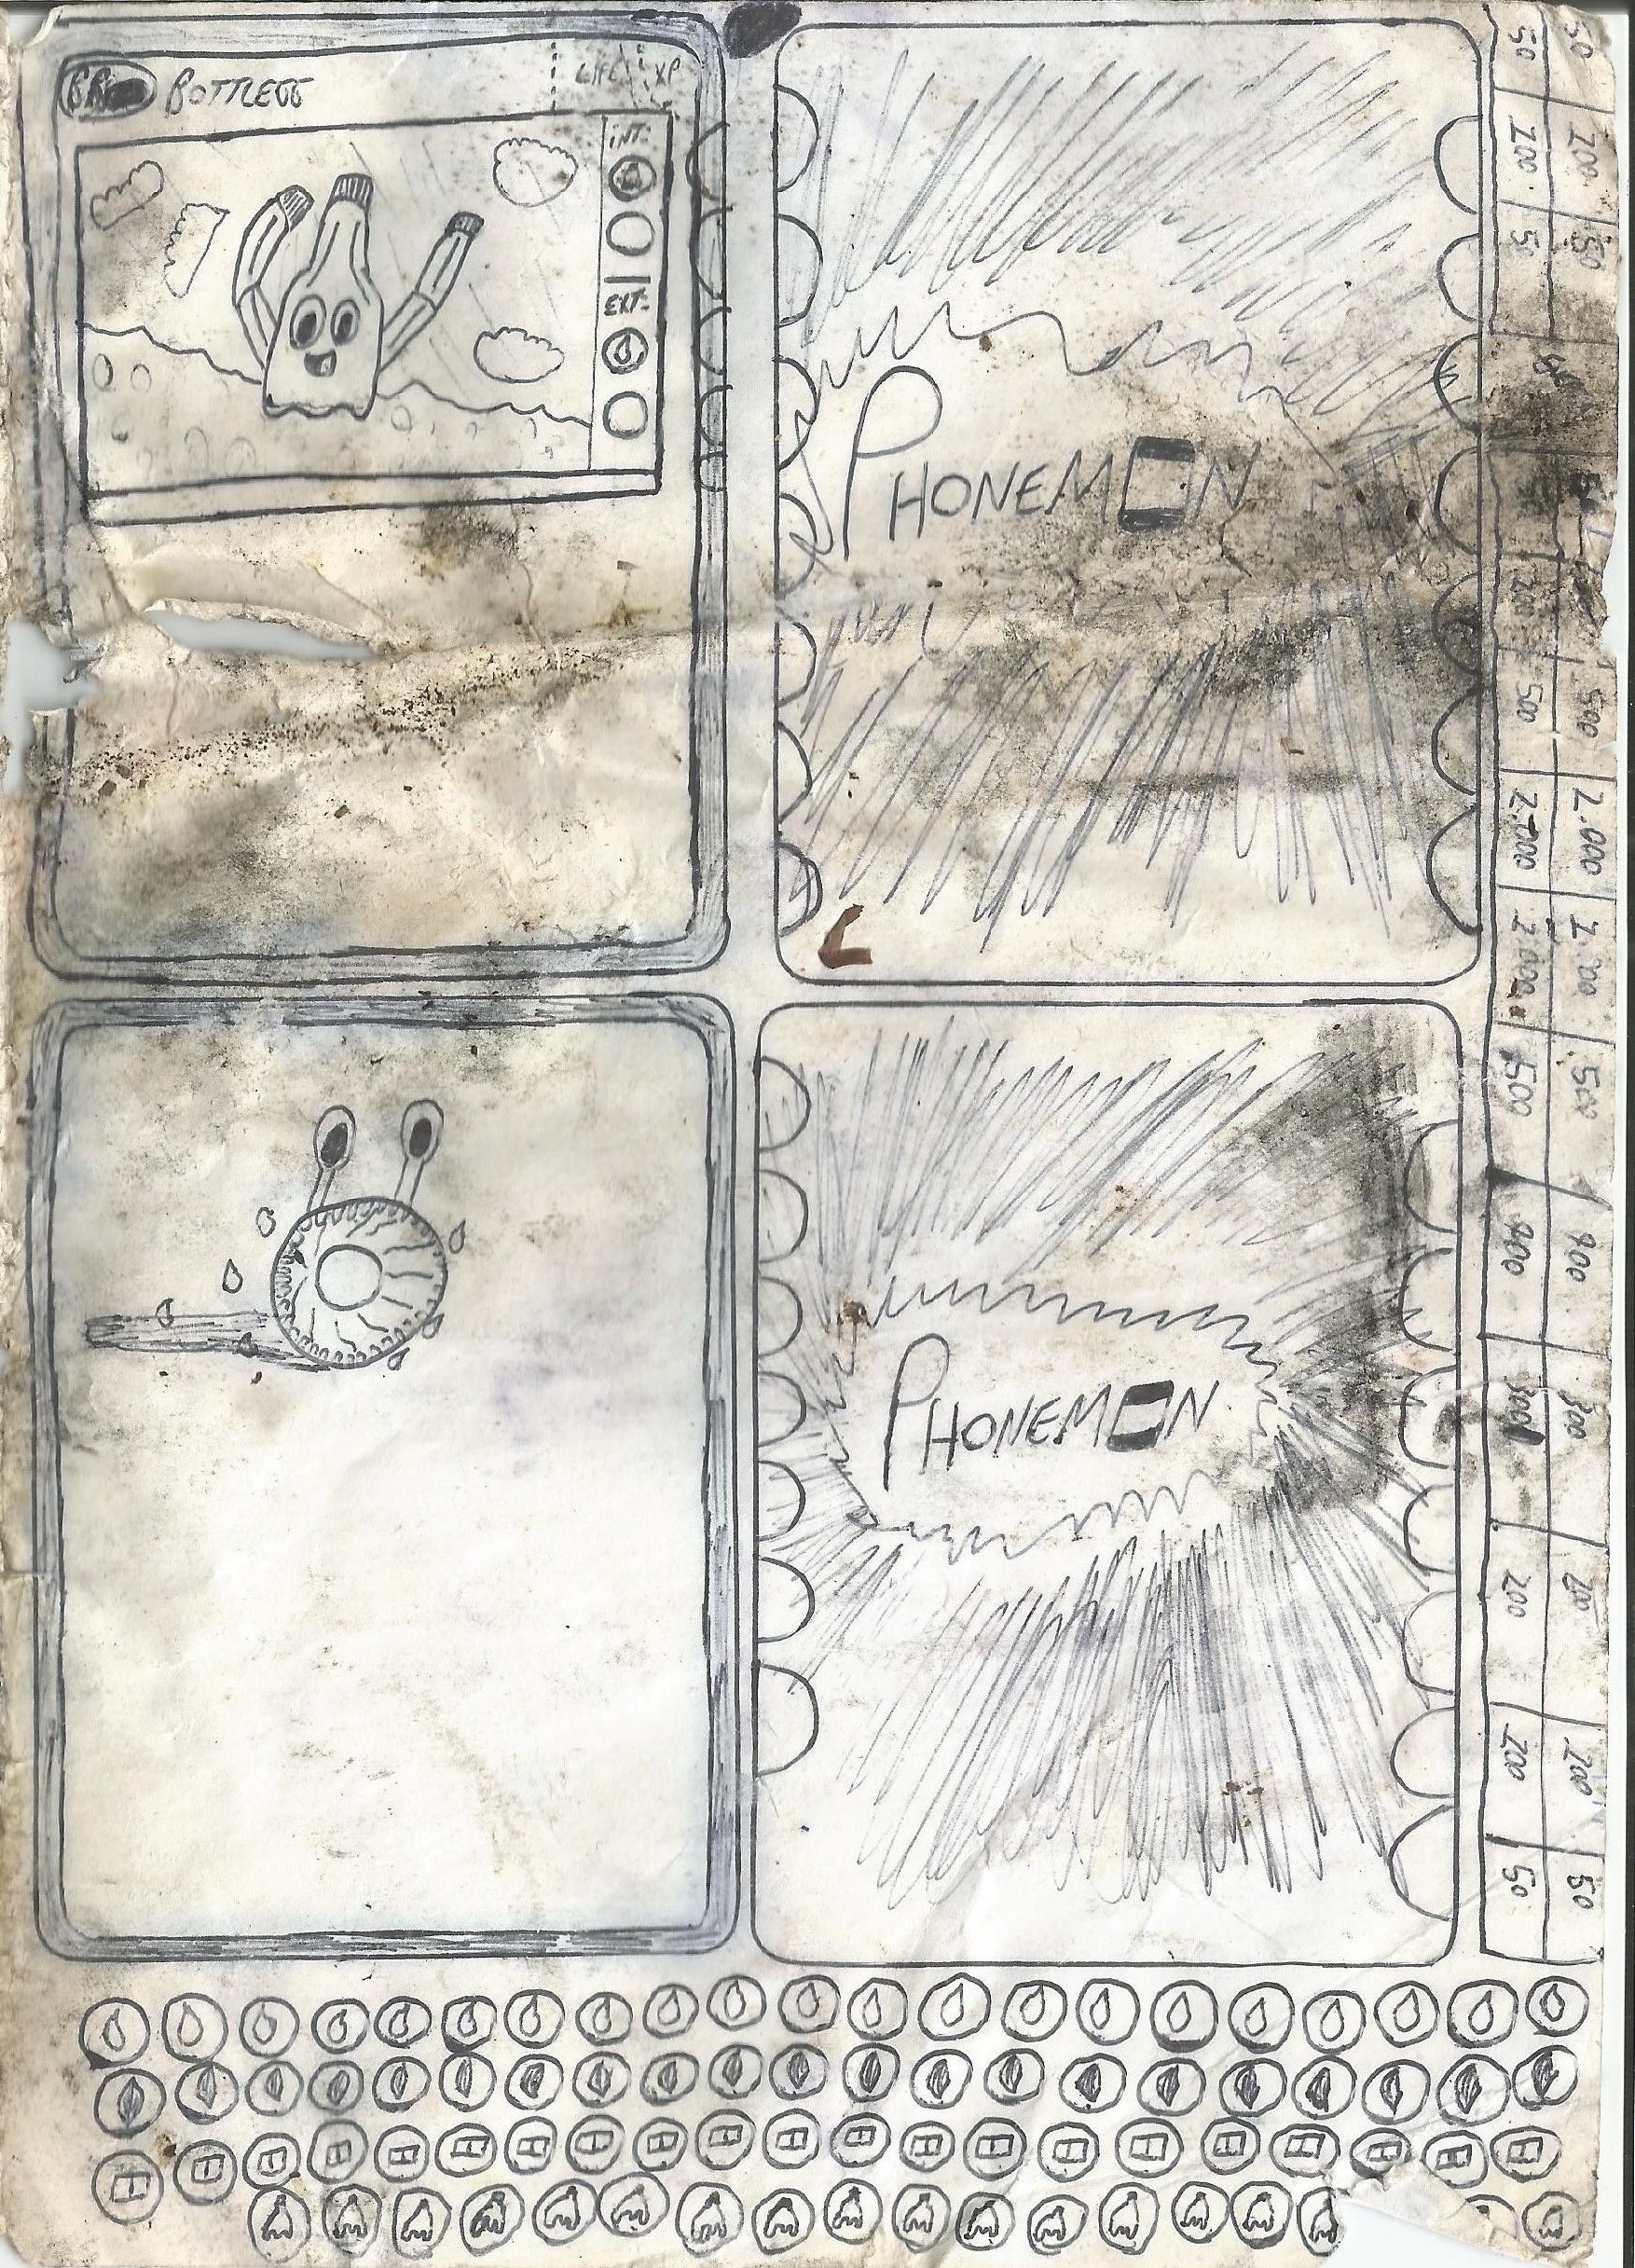 LIFE XP
INT:
EXT:
PHONEMON
PHONEMON
50 50
200 200
50 50
200
500 500
2.000 2.000
2.000
500 500
900 900
300 300
200 200
200 200
50 50